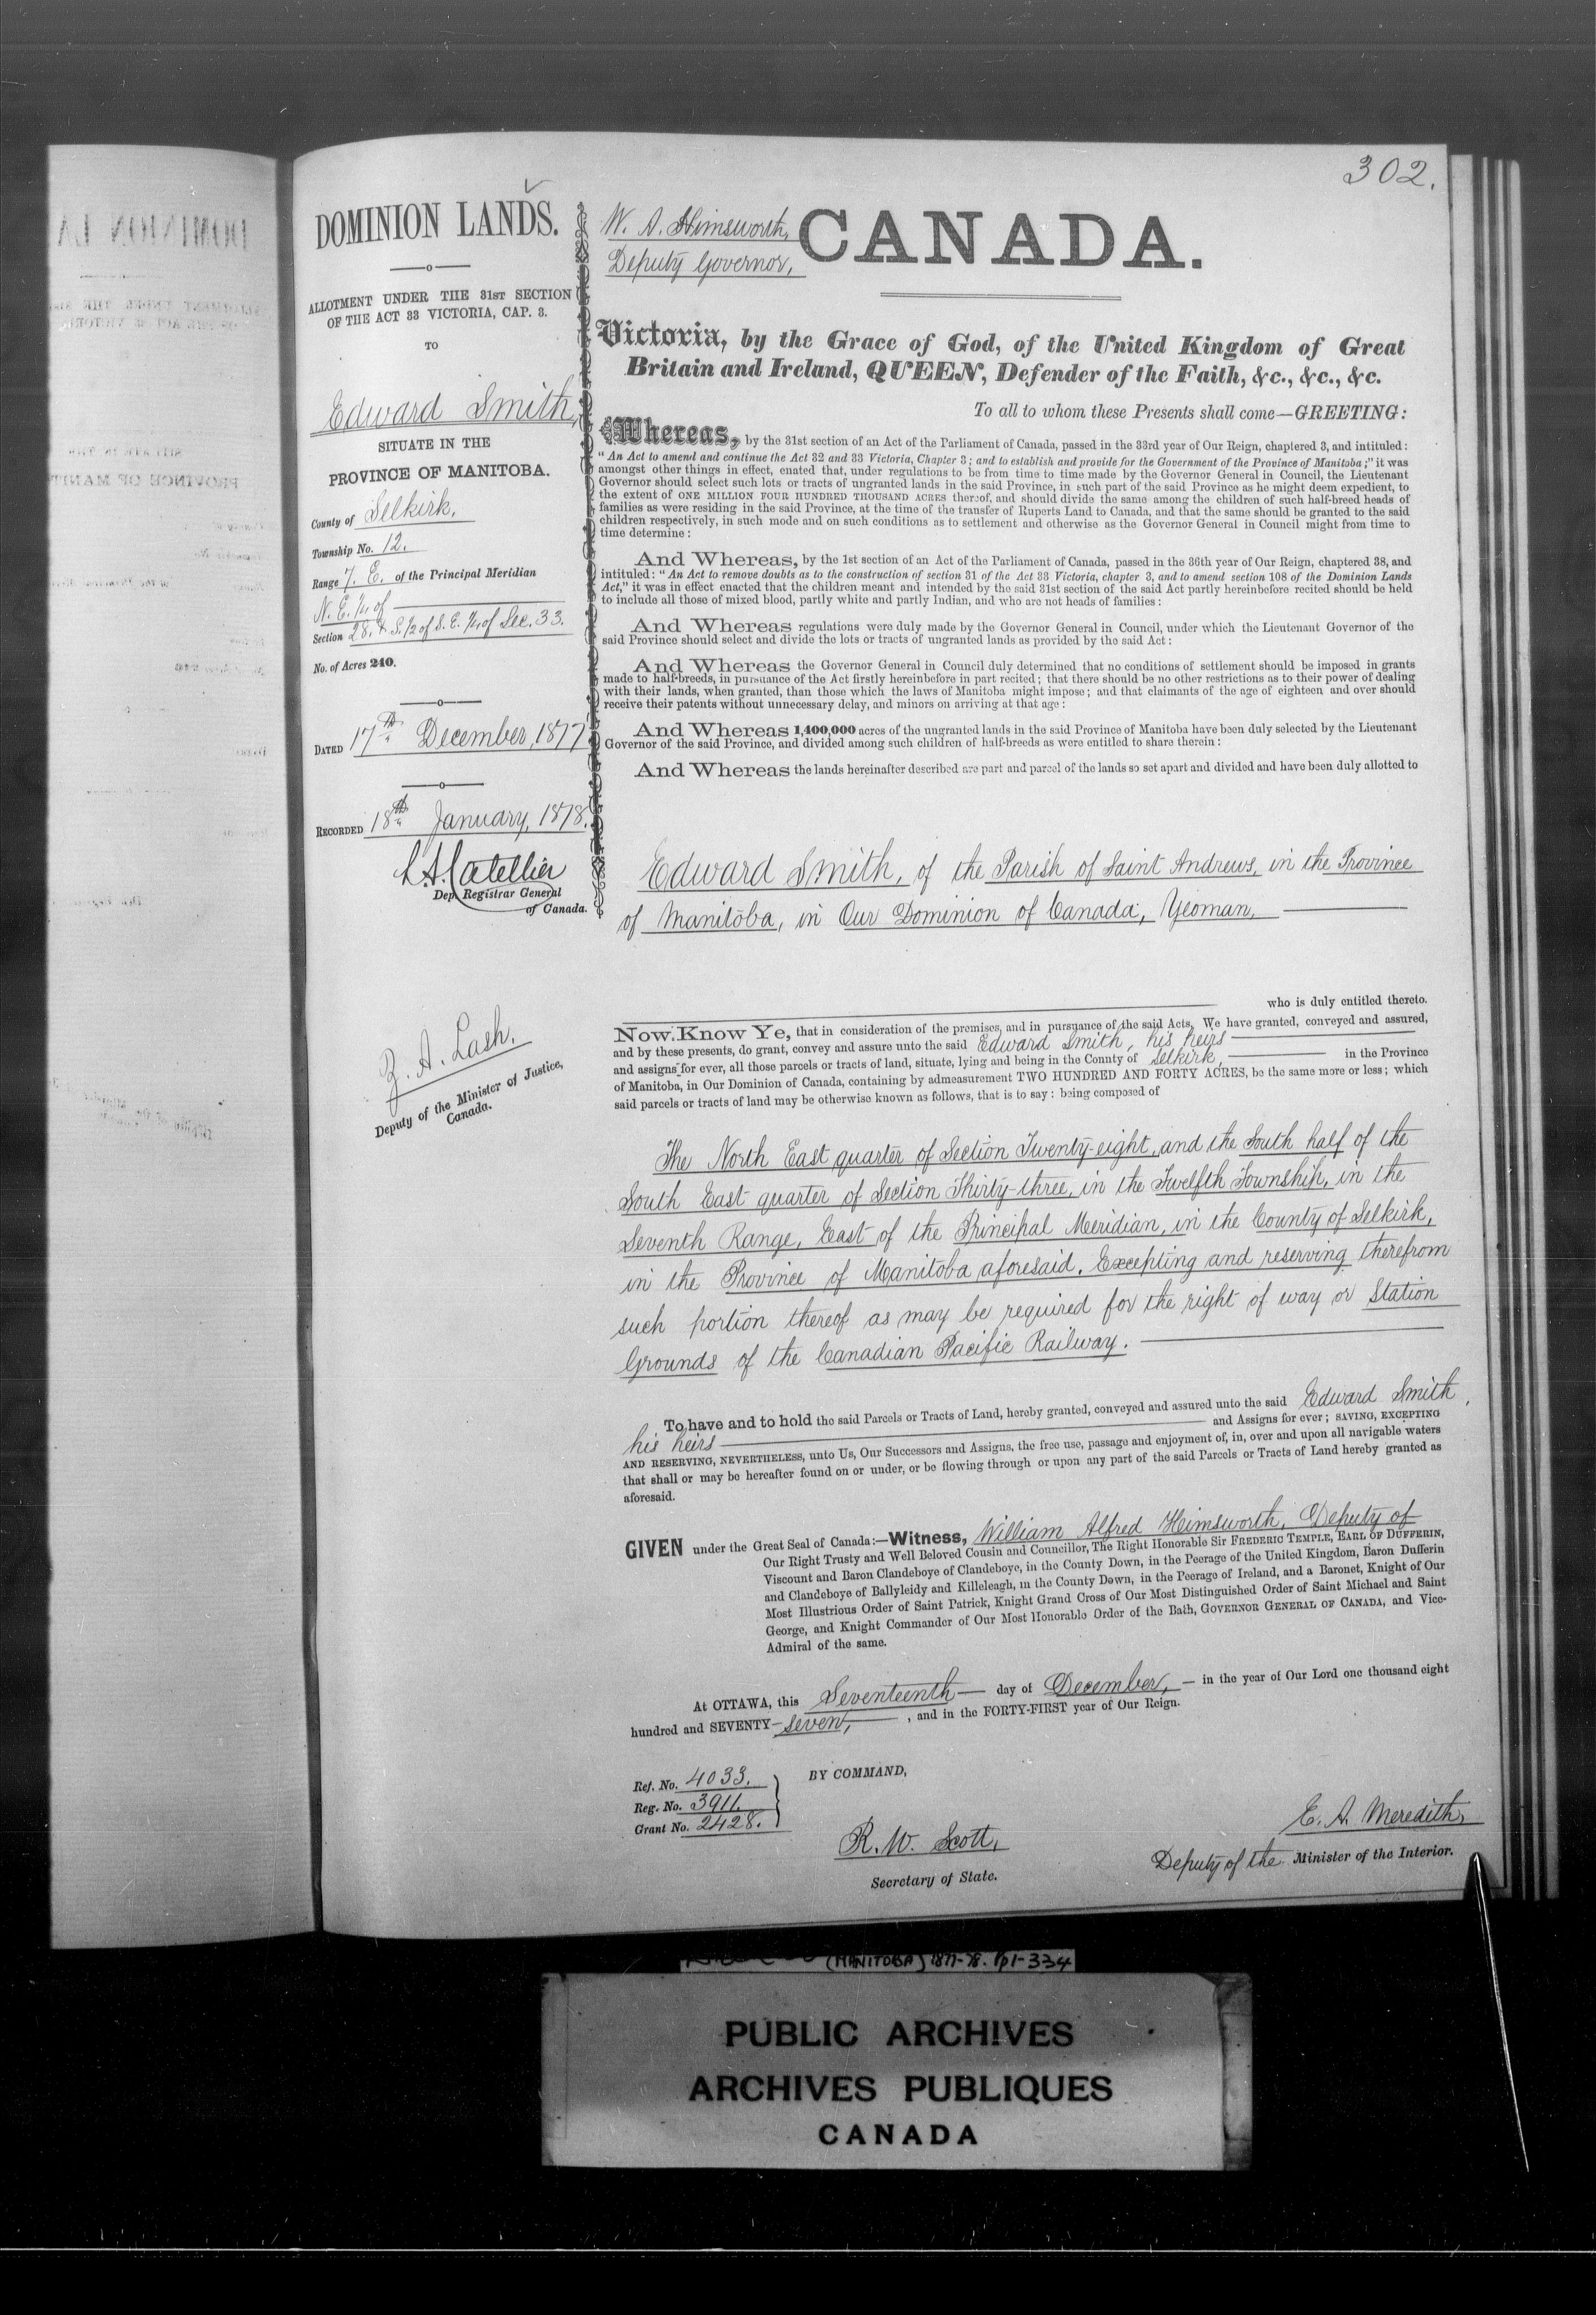 302.
DOMINION LANDS.
ALLOTMENT UNDER THE 31ST SECTION
OF THE ACT 33 VICTORIA, CAP. 3.
TO
Edward Smith,
SITUATE IN THE
PROVINCE OF MANITOBA.
County of Selkirk,
Township No. 12.
Range 7. E. of the Principal Meridian
N. E. 1/4 of
Section 28, & S. 1/2 of S. E. 1/4 of Sec. 33.
No. of Acres 240.
DATED 17th December, 1877
RECORDED 18th January, 1878.
L. A. Catellier
Dep. Registrar General
of Canada.
Z. A. Lash.
Deputy of the Minister of Justice,
Canada.
W. A. Himsworth,
Deputy Governor,
CANADA.
Victoria, by the Grace of God, of the United Kingdom of Great
Britain and Ireland, QUEEN, Defender of the Faith, &c., &c., &c.
To all to whom these Presents shall come—GREETING:
Whereas, by the 31st section of an Act of the Parliament of Canada, passed in the 33rd year of Our Reign, chaptered 3, and intituled:
"An Act to amend and continue the Act 32 and 33 Victoria, Chapter 3; and to establish and provide for the Government of the Province of Manitoba;" it was
amongst other things in effect, enated that, under regulations to be from time to time made by the Governor General in Council, the Lieutenant
Governor should select such lots or tracts of ungranted lands in the said Province, in such part of the said Province as he might deem expedient, to
the extent of ONE MILLION FOUR HUNDRED THOUSAND ACRES thereof, and should divide the same among the children of such half-breed heads of
families as were residing in the said Province, at the time of the transfer of Ruperts Land to Canada, and that the same should be granted to the said
children respectively, in such mode and on such conditions as to settlement and otherwise as the Governor General in Council might from time to
time determine:
And Whereas, by the 1st section of an Act of the Parliament of Canada, passed in the 36th year of Our Reign, chaptered 38, and
intituled: "An Act to remove doubts as to the construction of section 31 of the Act 33 Victoria, chapter 3, and to amend section 108 of the Dominion Lands
Act," it was in effect enacted that the children meant and intended by the said 31st section of the said Act partly hereinbefore recited should be held
to include all those of mixed blood, partly white and partly Indian, and who are not heads of families:
And Whereas regulations were duly made by the Governor General in Council, under which the Lieutenant Governor of the
said Province should select and divide the lots or tracts of ungranted lands as provided by the said Act:
And Whereas the Governor General in Council duly determined that no conditions of settlement should be imposed in grants
made to half-breeds, in pursuance of the Act firstly hereinbefore in part recited; that there should be no other restrictions as to their power of dealing
with their lands, when granted, than those which the laws of Manitoba might impose; and that claimants of the age of eighteen and over should
receive their patents without unnecessary delay, and minors on arriving at that age:
And Whereas 1,400,000 acres of the ungranted lands in the said Province of Manitoba have been duly selected by the Lieutenant
Governor of the said Province, and divided among such children of half-breeds as were entitled to share therein:
And Whereas the lands hereinafter described are part and parcel of the lands so set apart and divided and have been duly allotted to
Edward Smith, of the Parish of Saint Andrews, in the Province
of Manitoba, in Our Dominion of Canada, Yeoman,
who is duly entitled thereto.
Now Know Ye, that in consideration of the premises, and in pursuance of the said Acts, We have granted, conveyed and assured,
and by these presents, do grant, convey and assure unto the said Edward Smith, his heirs
and assigns for ever, all those parcels or tracts of land, situate, lying and being in the County of Selkirk, in the Province
of Manitoba, in Our Dominion of Canada, containing by admeasurement TWO HUNDRED AND FORTY ACRES, be the same more or less; which
said parcels or tracts of land may be otherwise known as follows, that is to say: being composed of
The North East quarter of Section Twenty-eight, and the South half of the
South East quarter of Section Thirty-three, in the Twelfth Township, in the
Seventh Range, East of the Principal Meridian, in the County of Selkirk,
in the Province of Manitoba aforesaid. Excepting and reserving therefrom
such portion thereof as may be required for the right of way or Station
Grounds of the Canadian Pacific Railway.
To have and to hold the said Parcels or Tracts of Land, hereby granted, conveyed and assured unto the said Edward Smith,
his heirs and Assigns for ever; SAVING, EXCEPTING
AND RESERVING, NEVERTHELESS, unto Us, Our Successors and Assigns, the free use, passage and enjoyment of, in, over and upon all navigable waters
that shall or may be hereafter found on or under, or be flowing through or upon any part of the said Parcels or Tracts of Land hereby granted as
aforesaid.
GIVEN under the Great Seal of Canada:—Witness, William Alfred Himsworth, Deputy of
Our Right Trusty and Well Beloved Cousin and Councillor, The Right Honorable Sir FREDERIC TEMPLE, EARL OF DUFFERIN,
Viscount and Baron Clandeboye of Clandeboye, in the County Down, in the Peerage of the United Kingdom, Baron Dufferin
and Clandeboye of Ballyleidy and Killeleagh, in the County Down, in the Peerage of Ireland, and a Baronet, Knight of Our
Most Illustrious Order of Saint Patrick, Knight Grand Cross of Our Most Distinguished Order of Saint Michael and Saint
George, and Knight Commander of Our Most Honorable Order of the Bath, GOVERNOR GENERAL OF CANADA, and Vice-
Admiral of the same.
At OTTAWA, this Seventeenth day of December, in the year of Our Lord one thousand eight
hundred and SEVENTY-seven, , and in the FORTY-FIRST year of Our Reign.
Ref. No. 4033.
Reg. No. 3911.
Grant No. 2428.
BY COMMAND,
R. W. Scott,
Secretary of State.
E. A. Meredith,
Deputy of the Minister of the Interior.
(MANITOBA) 1877-78. pp1-334
PUBLIC ARCHIVES
ARCHIVES PUBLIQUES
CANADA